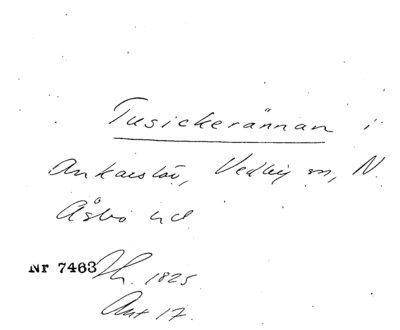 Tusickerännan i
Ankarslöv, Vedby sn, N.
Åsbo hd.
Nr 7463 Th. 1825.
Ant 17.